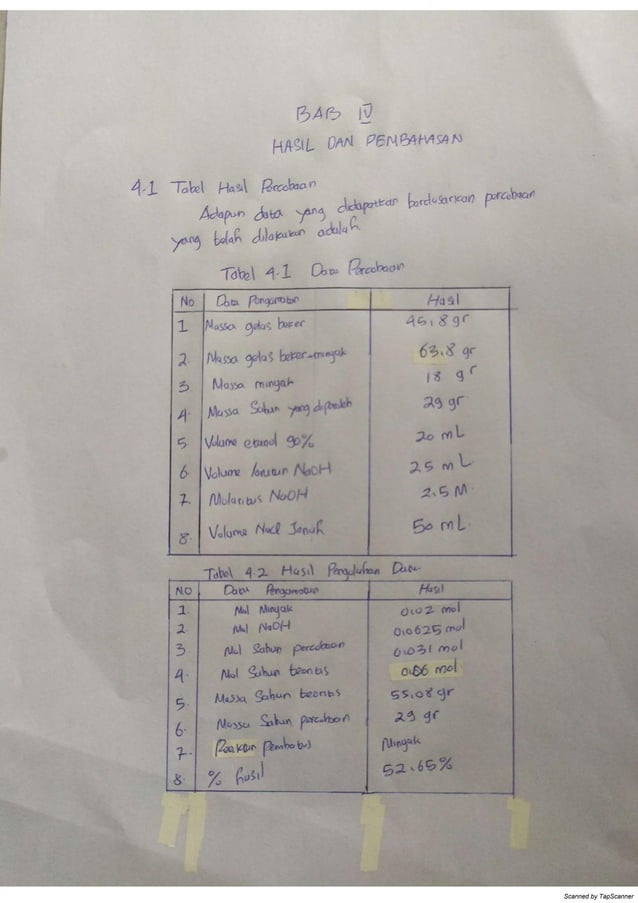 BAB IV
HASIL DAN PEMBAHASAN
4.1 Tabel Hasil Percobaan
Adapun data yang didapatkan berdasarkan percobaan
yang telah dilakukan adalah
Tabel 4.1 Data Percobaan
No Data Pengamatan Hasil
1 Massa gelas beker 45,8 gr
2. Massa gelas beker+minyak 63.8 gr
3. Massa minyak 18 gr
4. Massa Sabun yang diperoleh 29 gr
5. Volume etanol 90% 20 mL
6. Volume larutan NaOH 25 mL
7. Molaritas NaOH 2.5 M.
8. Volume Nacl Jenuh 50 mL.
Tabel 4.2 Hasil Pengolahan Data
NO Data Pengamatan Hasil
1. Mol Minyak 0,02 mol
2. Mol NaOH 0,0625 mol
3 Mol Sabun percobaan 0,031 mol
4. Mol Sabun teoritis 0,06 mol
5. Massa Sabun teoritis 55,08 gr
6. Massa Sabun percobaan 29 gr
7. Reaktan Pembatas Minyak
8. % hasil 52.65%
Scanned by TapScanner